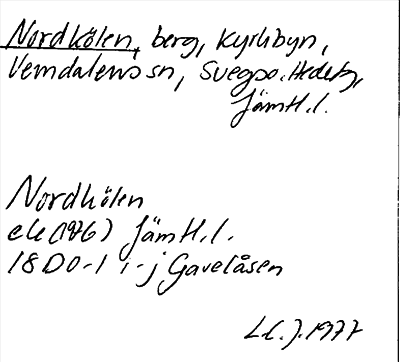 Nordkölen, berg, Kyrkbyn,
Vemdalens sn, Svegs o. Hedeby,
Jämtl. l.
Nordkölen
ek (1976) Jämtl. l.
18D0-1 i-j Gavelåsen
1977